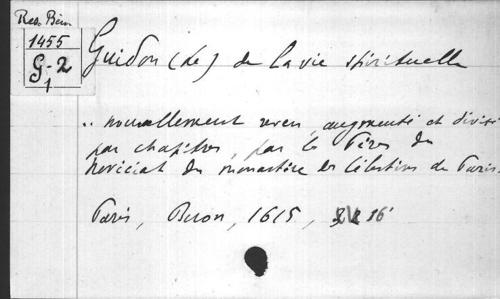 Res. Bém
1455
G-2
1
Guidon (Le) de la vie spirituelle
.. nouvellement reveu, augmenté et divisé
par chapitres, par le Père du
Noviciat du monastère des Célestins de Paris.
Paris, Buon, 1615, 16°